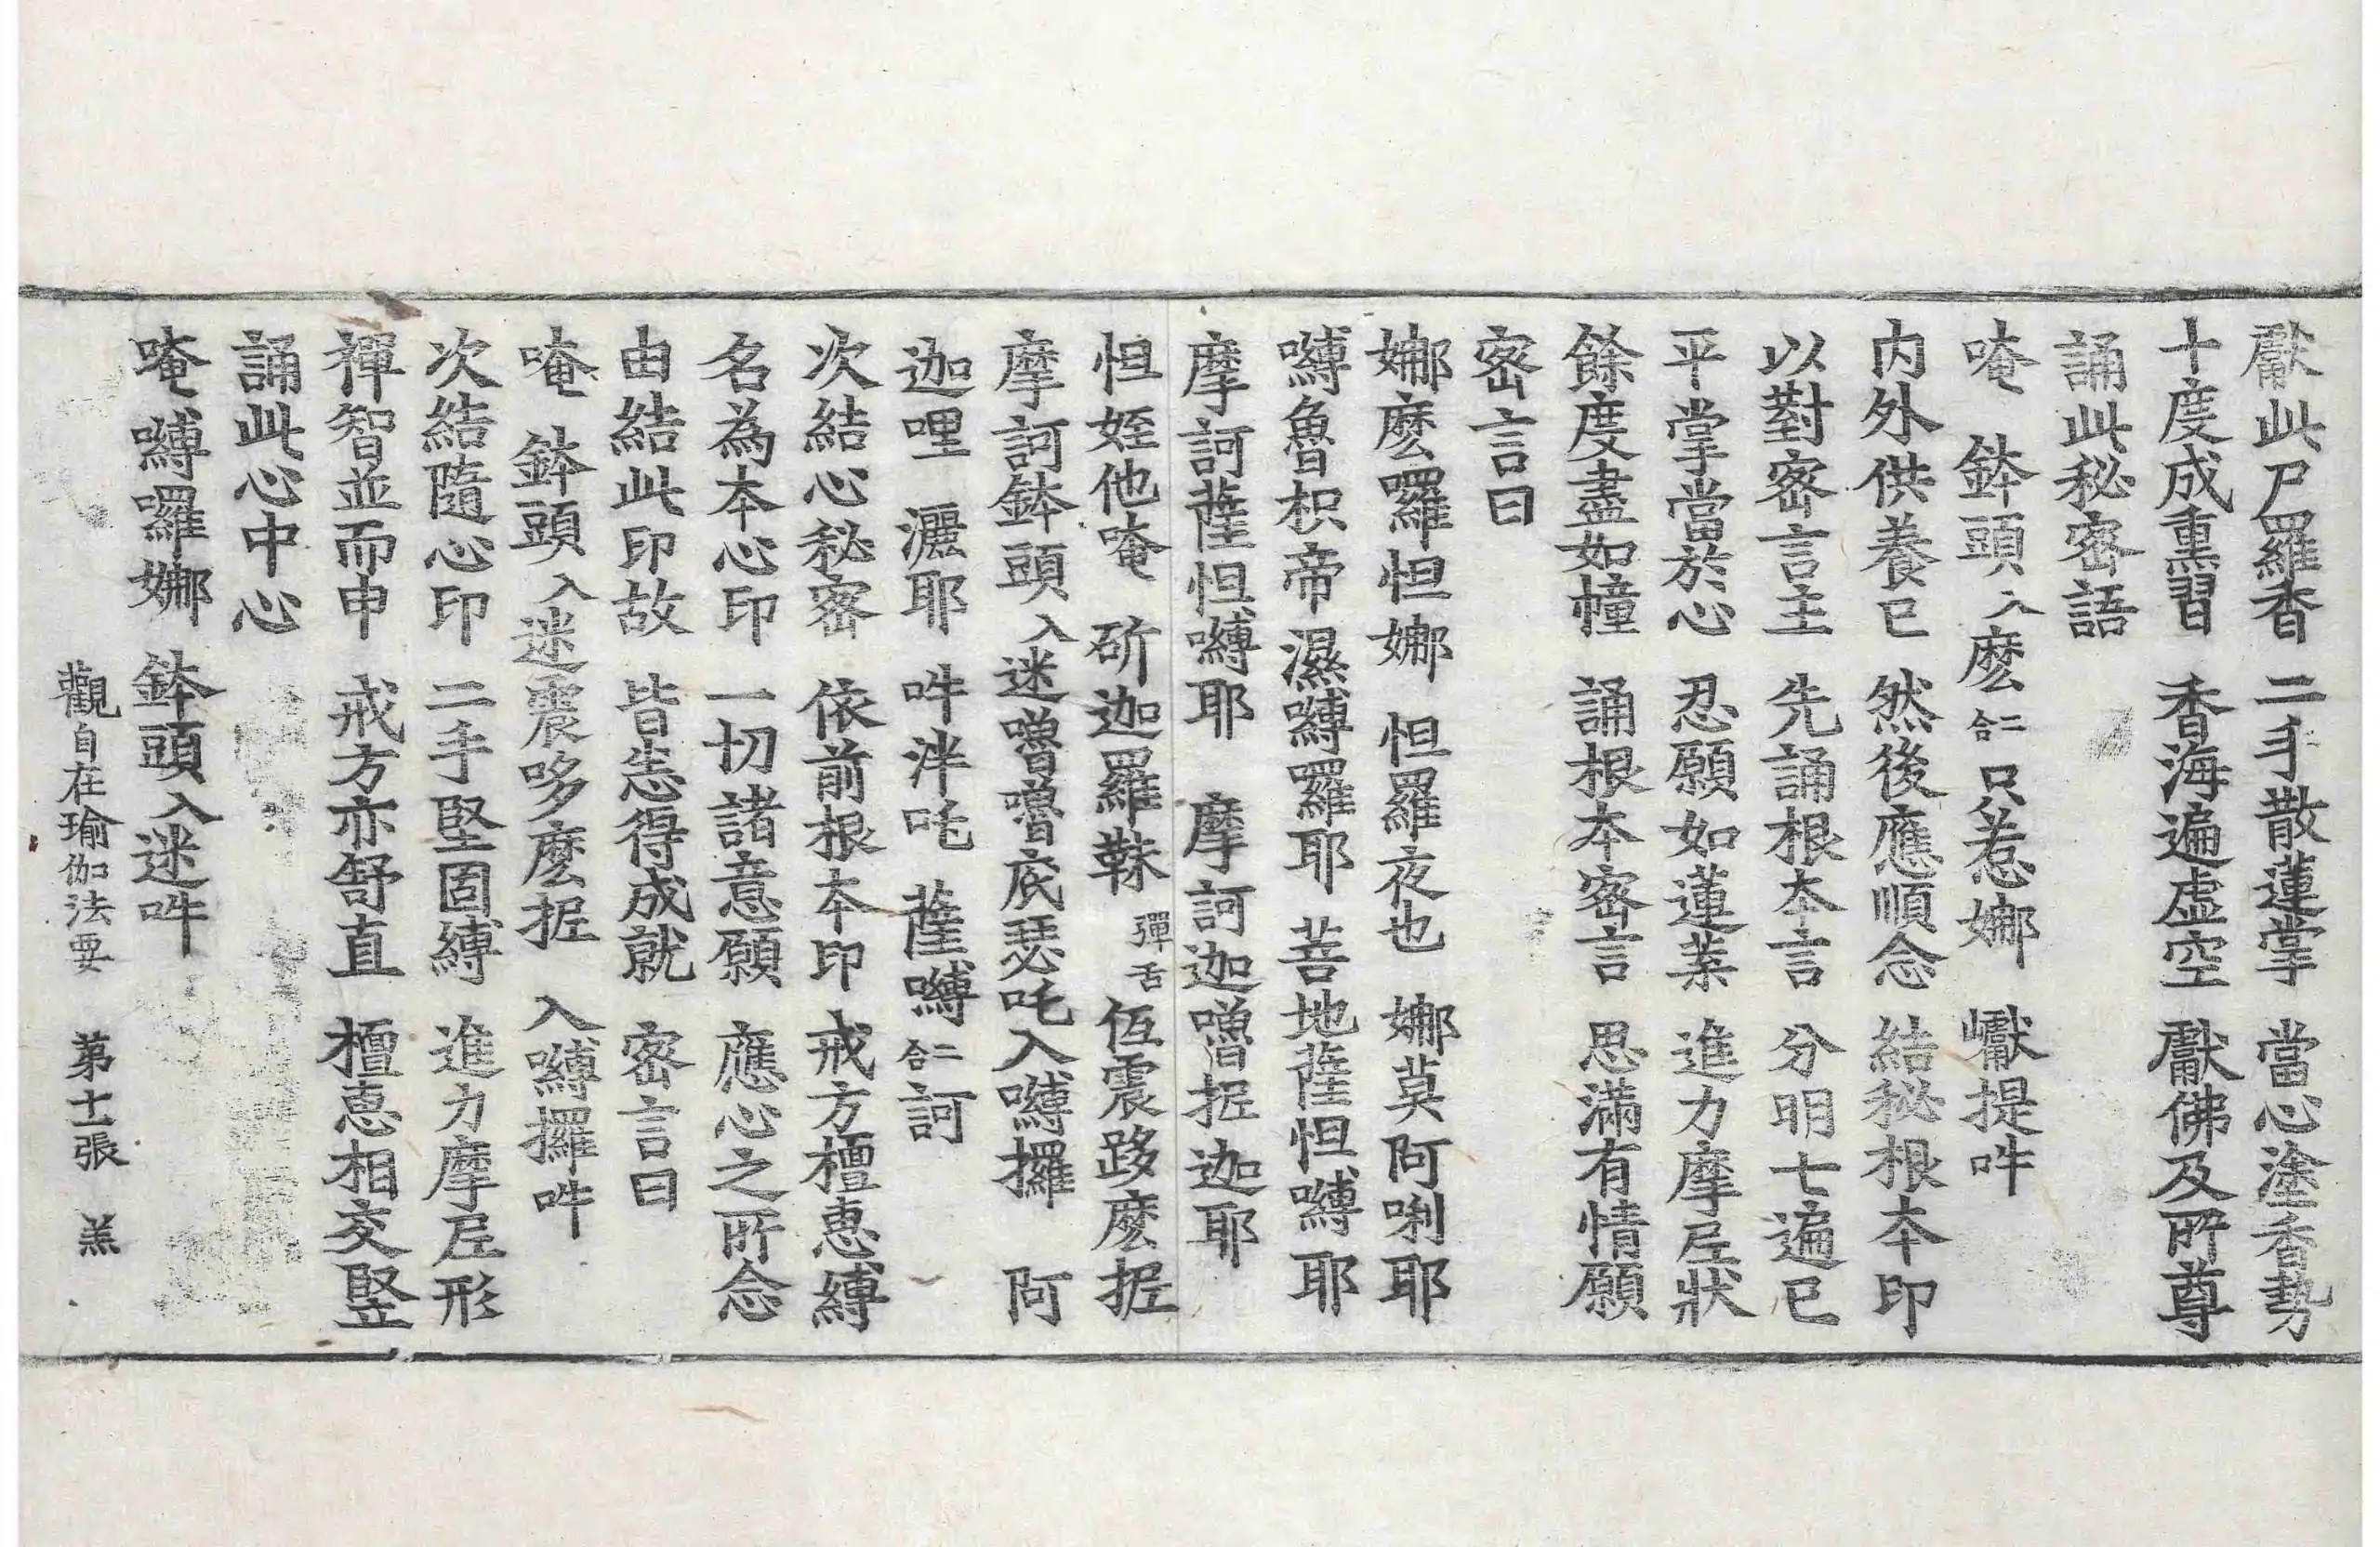 獻此尸羅香　二手散蓮掌　當心塗香勢
十度成熏習　香海遍虛空　獻佛及所尊
誦此秘密語
唵　鉢頭入麽二合只惹娜　巘提吽
内外供養已　然後應順念　結秘根本印
以對密言主　先誦根本言　分明七遍已
平掌當於心　忍願如蓮葉　進力摩尼狀
餘度盡如幢　誦根本密言　思滿有情願
密言曰
娜麽囉怛娜　怛羅夜也　娜莫阿唎耶
嚩魯枳帝　濕嚩囉耶　菩地薩怛嚩耶
摩訶薩怛嚩耶　摩訶迦嚕抳迦耶
怛姪他唵　斫迦羅靺彈舌　伍震跢麽抳
摩訶鉢頭入迷嚕嚕底瑟吒入嚩攞　阿
迦哩　灑耶　吽泮吒　薩嚩二合訶
次結心秘密　依前根本印　戒方檀惠縛
名為本心印　一切諸意願　應心之所念
由結此印故　皆悉得成就　密言曰
唵　鉢頭入迷震哆麽抳　入嚩攞吽
次結隨心印　二手堅固縛　進力摩尼形
禪智並而申　戒方亦舒直　檀惠相交竪
誦此心中心
唵　嚩囉娜　鉢頭入迷吽
觀自在瑜伽法要　第十一張　羔